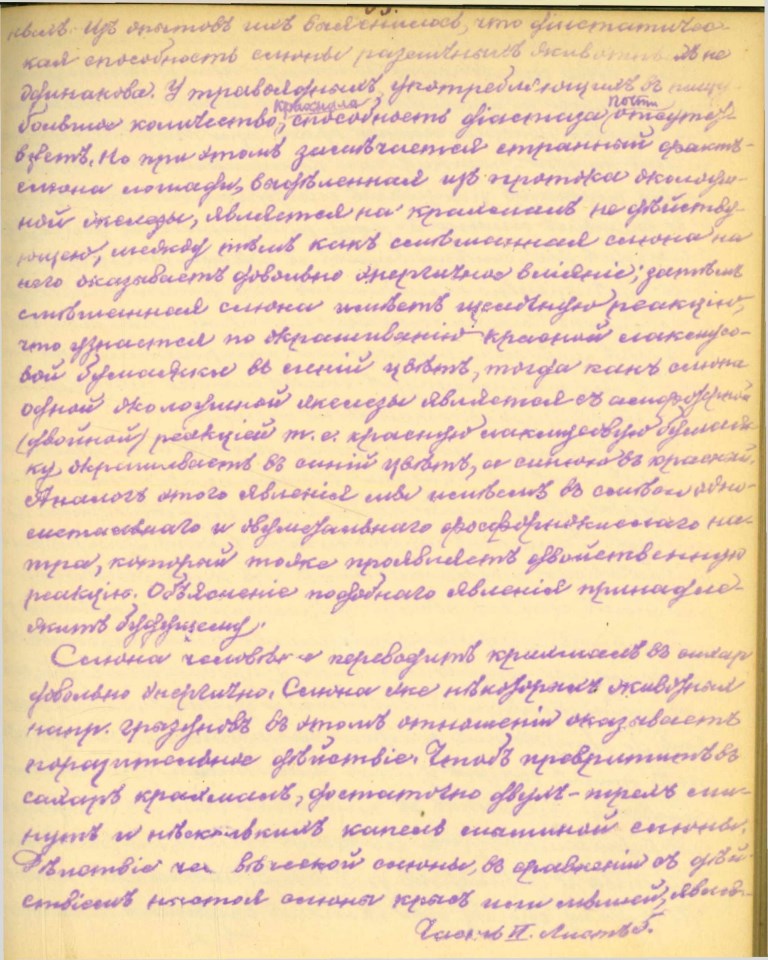 Изъ опытовъ ихъ выяснилось, что діастатичес-
кая способность слюны различныхъ животныхъ не
одинакова. У травоядныхъ, употребляющихъ въ пищу
большое количество крахмала, способность діастаза почти отсутст-
вуетъ. Но при этомъ замѣчается странный фактъ-
слюна лошади, выдѣленная изъ протока околоуш-
ной железы, является на крахмалъ не дѣйству-
ющею, между тѣмъ какъ смѣшанная слюна на
него оказываетъ довольно энергичное вліяніе; затѣмъ
смѣшанная слюна имѣетъ щелочную реакцію,
что узнается по окрашиванію красной лакмусо-
вой бумажки въ синій цвѣтъ, тогда какъ слюна
одной околоушной железы является съ амфотерной
(двойной) реакціей т.е. красную лакмусовую бумаж-
ку окрашиваетъ въ синій цвѣтъ, а синюю въ красный.
Аналогъ этого явленія мы имѣемъ въ смѣси одно-
и двуметальнаго фосфорнокислаго на-
тра, который тоже проявляетъ двойственную
реакцію. Объясненіе подобнаго явленія принадле-
житъ будущему.
Слюна человѣка переводитъ крахмалъ въ сахаръ
довольно энергично. Слюна же нѣкоторыхъ животныхъ
напр. грызуновъ въ этомъ отношеніи оказываетъ
поразительное дѣйствіе. Чтобъ превратить въ
сахаръ крахмалъ, достаточно двухъ-трехъ ми-
нутъ и нѣсколькихъ капель мышиной слюны.
Дѣйствіе человѣческой слюны, въ сравненіи съ дѣй-
ствіемъ настоя слюны крысъ или мышей, являет-
Часть II. Листъ 5.